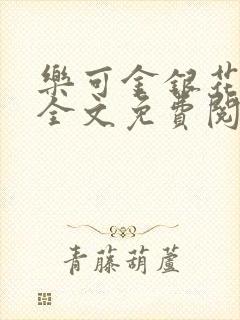 樂可金銀花
全文免費閱
青藤葫蘆